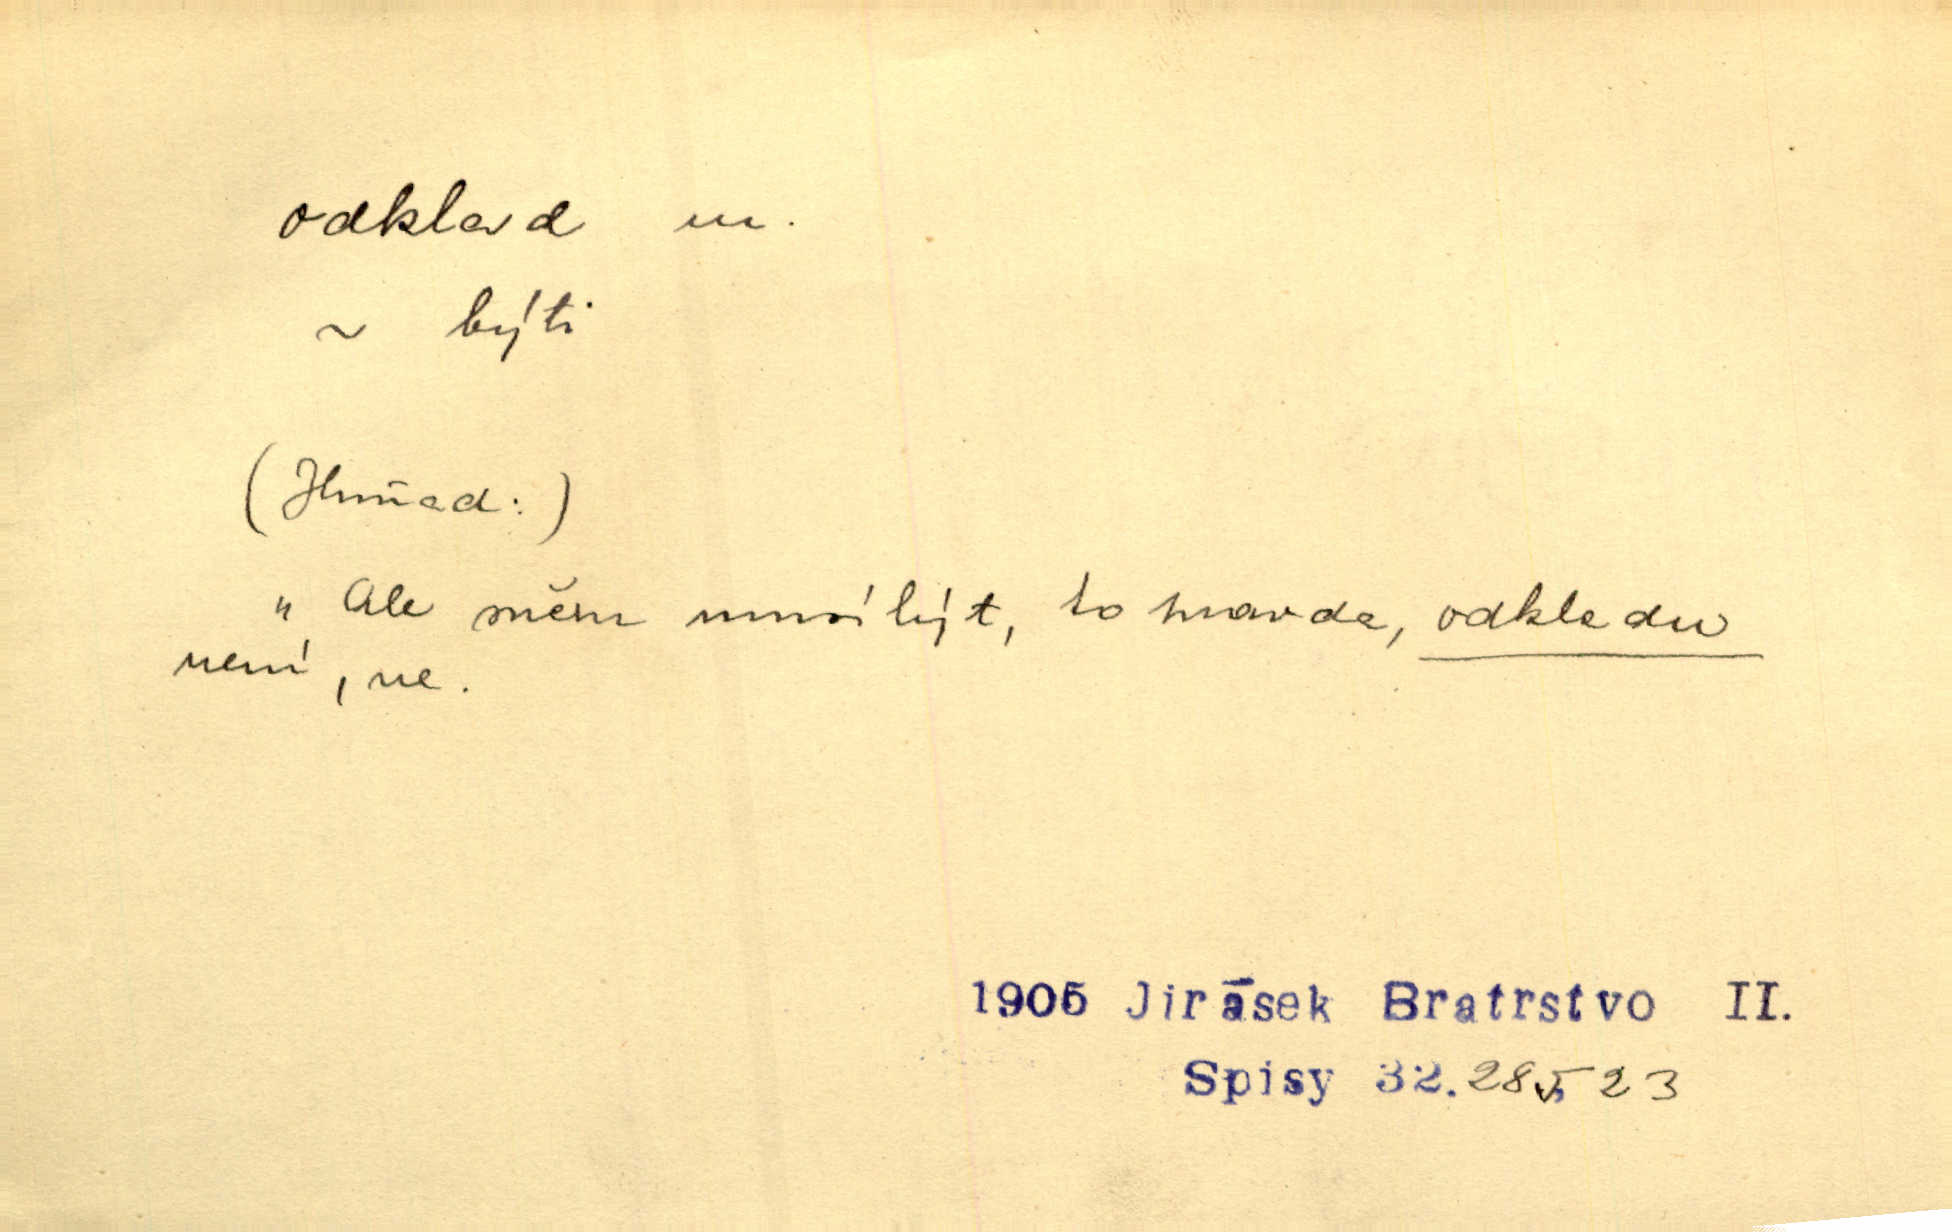 odklad m.
~ býti
(Ihnád:)
„Ale sněm musí být, to pravda, odkladu
není, ne.
1905 Jirásek Bratrstvo II.
Spisy 32. 285, 23